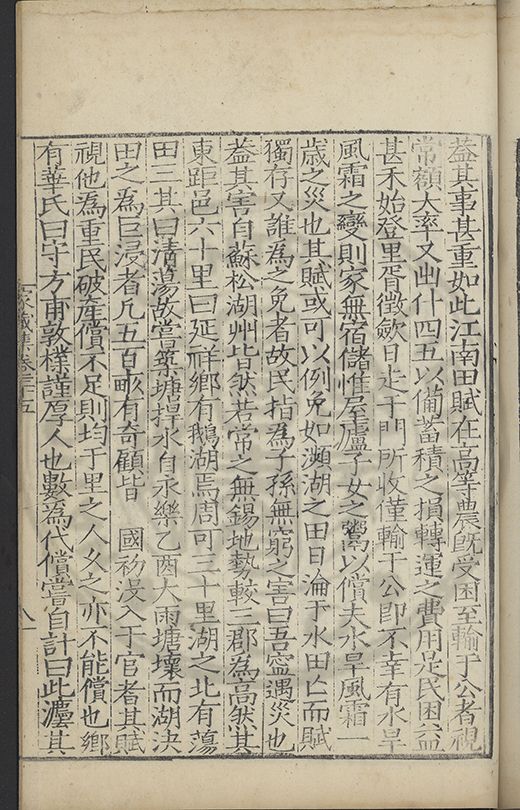 葢其事甚重如此江南田賦在高等農旣受困至輸于公者視
常額大率又出什四五以備蓄積之損轉運之費用是民困益
甚禾始登里胥徵歛日走于門所收僅輸于公卽不幸有水旱
風霜之變則家無宿儲惟屋廬子女之鬻以償夫水旱風霜一
歳之災也其賦或可以例免如瀕湖之田日淪于水田亡而賦
獨存又誰為之免者故民指為子孫無窮之害曰吾寧遇災也
葢其害自蘇松湖州皆然若常之無錫地勢較三郡為高然其
東距邑六十里曰延祥鄉有鵝湖焉周可三十里湖之北有蕩
田三其曰清蕩故嘗築塘捍水自永樂乙酉大雨塘壞而湖决
田之為巨浸者凡五百畝有奇顧皆 國初没入于官者其賦
視他為重民破産償不足則均于里之人久之亦不能償也鄉
有華氏曰守方甫敦樸謹厚人也數為代償嘗自計曰此瀍其
家藏集卷三十五
八